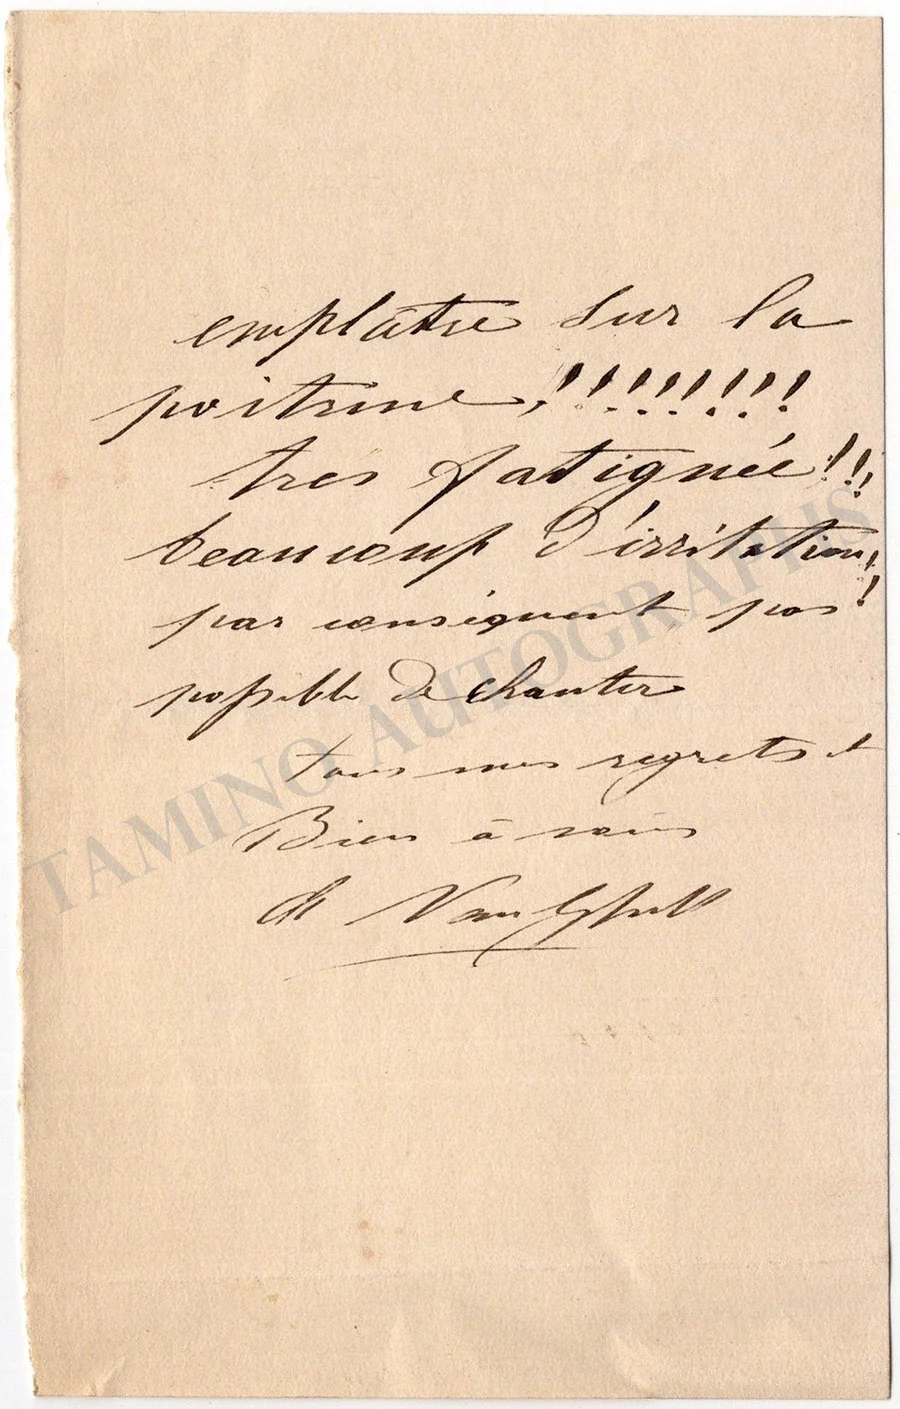 emplâtre sur la
poitrine,!!!!!!!!
tres fatignée!!!
beaucoup d'irritation!
par conséquent pas!
possible de chanter
tous mes regrets et
Bien à vous
Van
TAMINO AUTOGRAPHS